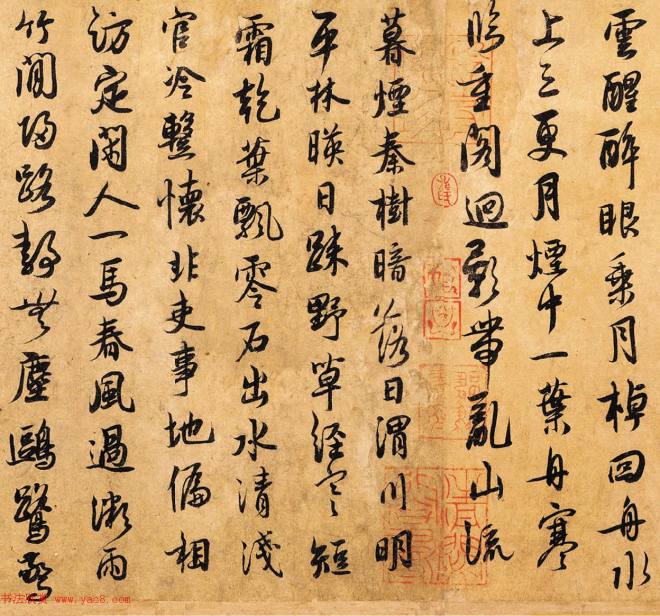 雲醒醉眼乘月棹回舟水
上三更月煙中一葉舟寒
臨重閣迥影帶亂山流
暮煙秦樹暗落日渭川明
平林暎日踈野草經寒短
霜乾葉飄零石出水清淺
官冷繫懷非吏事地偏相
訪定閑人一馬春風過微雨
竹間歸路靜無塵鷗鷺
书法欣赏 www.yac8.com